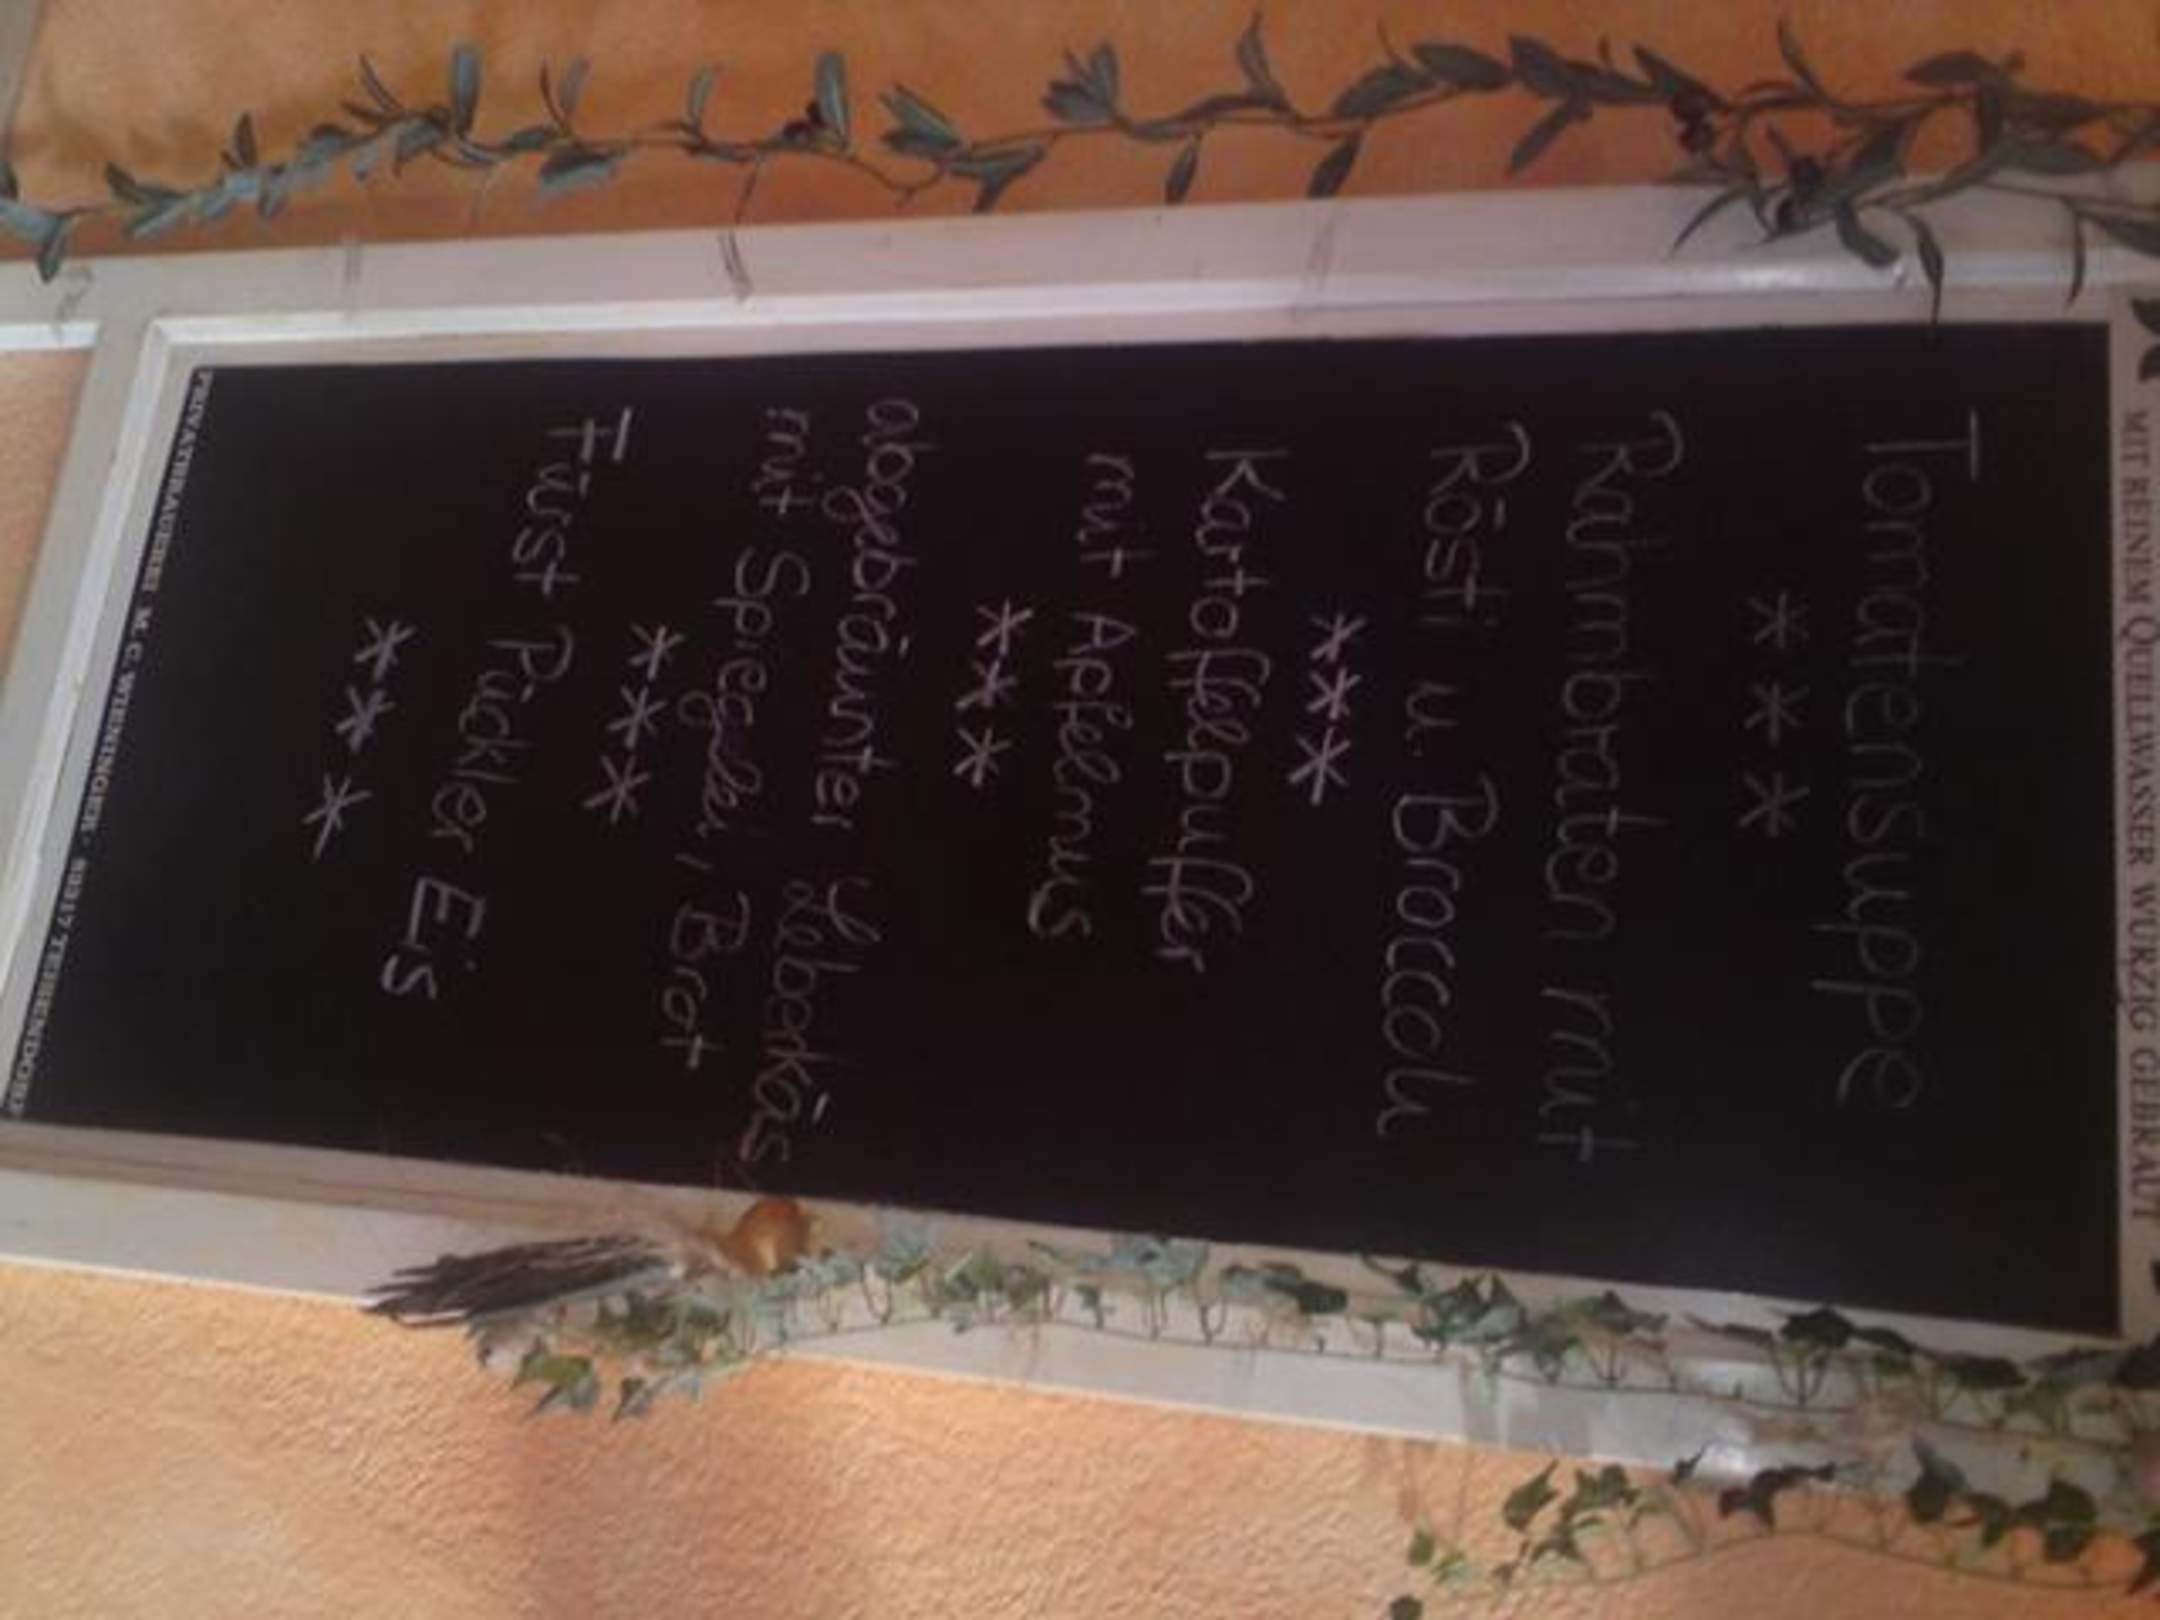 MIT REINEM QUELLWASSER WÜRZIG GEBRAUT
Tomatensuppe
* * *
Rahmbraten mit
Rösti u. Broccoli
* * *
Kartoffelpuffer
mit Apfelmus
* * *
abgebräunter Leberkäs
mit Spiegelei, Brot
* * *
Fürst Pückler Eis
* * *
PRIVATBRAUEREI M. C. WIENINGER · 83317 TEISENDORF